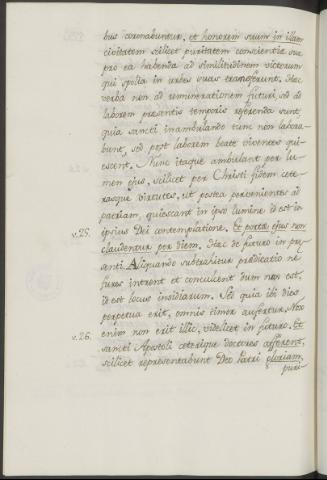 bus coronabuntur, et honorem suum in illam
civitatem scilicet puritatem conscientiæ suæ
pro ea habenda ad similitudinem victorum
qui spolia in urbes suas transferunt. Hæc
verba non ad remunerationem futuri, sed ad
laborem præsentis temporis referenda sunt,
quia sancti inambulando tum non labora-
bunt, sed post laborem beate viventes qui-
escent. Nunc itaque ambulant per lu-
men ejus, scilicet per Christi fidem cete-
rasque virtutes, ut postea pervenientes ad
patriam, quiescant in ipso lumine id est in
ipsius Dei contemplatione. Et portæ ejus non
v. 25.
claudentur per diem. Hæc de futuro in præ-
senti Aliquando subtrahitur prædicatio ne
fures intrent et conculcent dum nox est,
id est locus insidiarum. Sed quia ibi dies
perpetua erit, omnis timor aufertur. Nox
enim non erit illic, videlicet in futuro. Et
v. 26.
sancti Apostoli ceterique doctores afferent,
scilicet repræsentabunt Deo Patri gloriam,
puri-